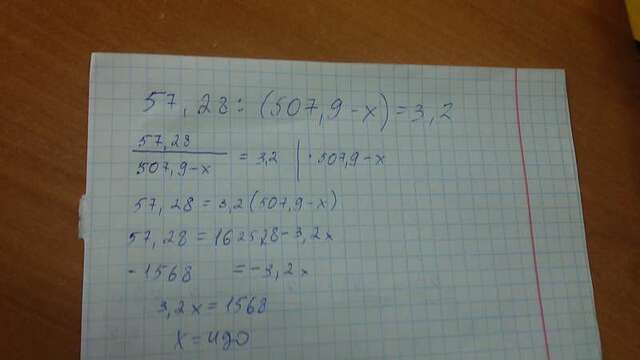 57,28 : (507,9 - x) = 3,2
57,28 / 507,9 - x = 3,2 | · 507,9 - x
57,28 = 3,2 (507,9 - x)
57,28 = 1625,28 - 3,2x
-1568 = -3,2x
3,2x = 1568
x = 490